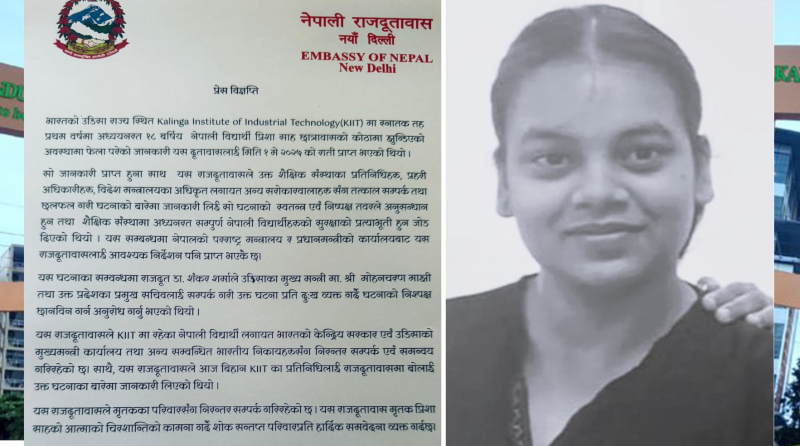 नेपाली राजदूतावास
नयाँ दिल्ली
EMBASSY OF NEPAL
New Delhi
प्रेस विज्ञप्ति
भारतको उडिसा राज्य स्थित Kalinga Institute of Industrial Technology(KIIT) मा स्नातक तह
प्रथम वर्षमा अध्ययनरत १८ बर्षिय नेपाली विद्यार्थी प्रिशा साह छात्रावासको कोठामा झुन्डिएको
अवस्थामा फेला परेको जानकारी यस दूतावासलाई मिति १ मे २०२५ को राती प्राप्त भएको थियो ।
सो जानकारी प्राप्त हुना साथ यस राजदूतावासले उक्त शैक्षिक संस्थाका प्रतिनिधिहरु, प्रहरी
अधिकारीहरु, विदेश मन्त्रालयका अधिकृत लगायत अन्य सरोकारवालाहरु सँग तत्काल सम्पर्क तथा
छलफल गरी घटनाको बारेमा जानकारी लिई सो घटनाको स्वतन्त्र एवँ निष्पक्ष तवरले अनुसन्धान
हुन तथा शैक्षिक संस्थामा अध्यनरत सम्पुर्ण नेपाली विद्यार्थीहरुको सुरक्षाको प्रत्याभूती हुन जोड
दिएको थियो । यस सम्बन्धमा नेपालको परराष्ट्र मन्त्रालय र प्रधानमन्त्रीको कार्यालयबाट यस
राजदूतावासलाई आवश्यक निर्देशन पनि प्राप्त भएकै छ।
यस घटनाका सम्वन्धमा राजदूत डा. शंकर शर्माले उडिसाका मुख्य मन्त्री मा. श्री मोहनचरण माझी
तथा उक्त प्रदेशका प्रमुख सचिवलाई सम्पर्क गरी उक्त घटना प्रति दुःख व्यक्त गर्दै घटनाको निश्पक्ष
छानविन गर्न अनुरोध गर्नु भएको थियो ।
यस राजदूतावासले KIIT मा रहेका नेपाली विद्यार्थी लगायत भारतको केन्द्रिय सरकार एवँ उडिसाको
मुख्यमन्त्री कार्यालय तथा अन्य सम्वन्धित भारतीय निकायहरुसँग निरन्तर सम्पर्क एवँ समन्वय
गरिरहेको छ। साथै, यस राजदूतावासले आज बिहान KIIT का प्रतिनिधिलाई राजदूतावासमा बोलाई
उक्त घटनाका बारेमा जानकारी लिएको थियो ।
यस राजदूतावासले मृतकका परिवारसँग निरन्तर सम्पर्क गरिरहेको छ । यस राजदूतावास मृतक प्रिशा
साहको आत्माको चिरशान्तिको कामना गर्दै शोक सन्तप्त परिवारप्रति हार्दिक समवेदना व्यक्त गर्दछ।